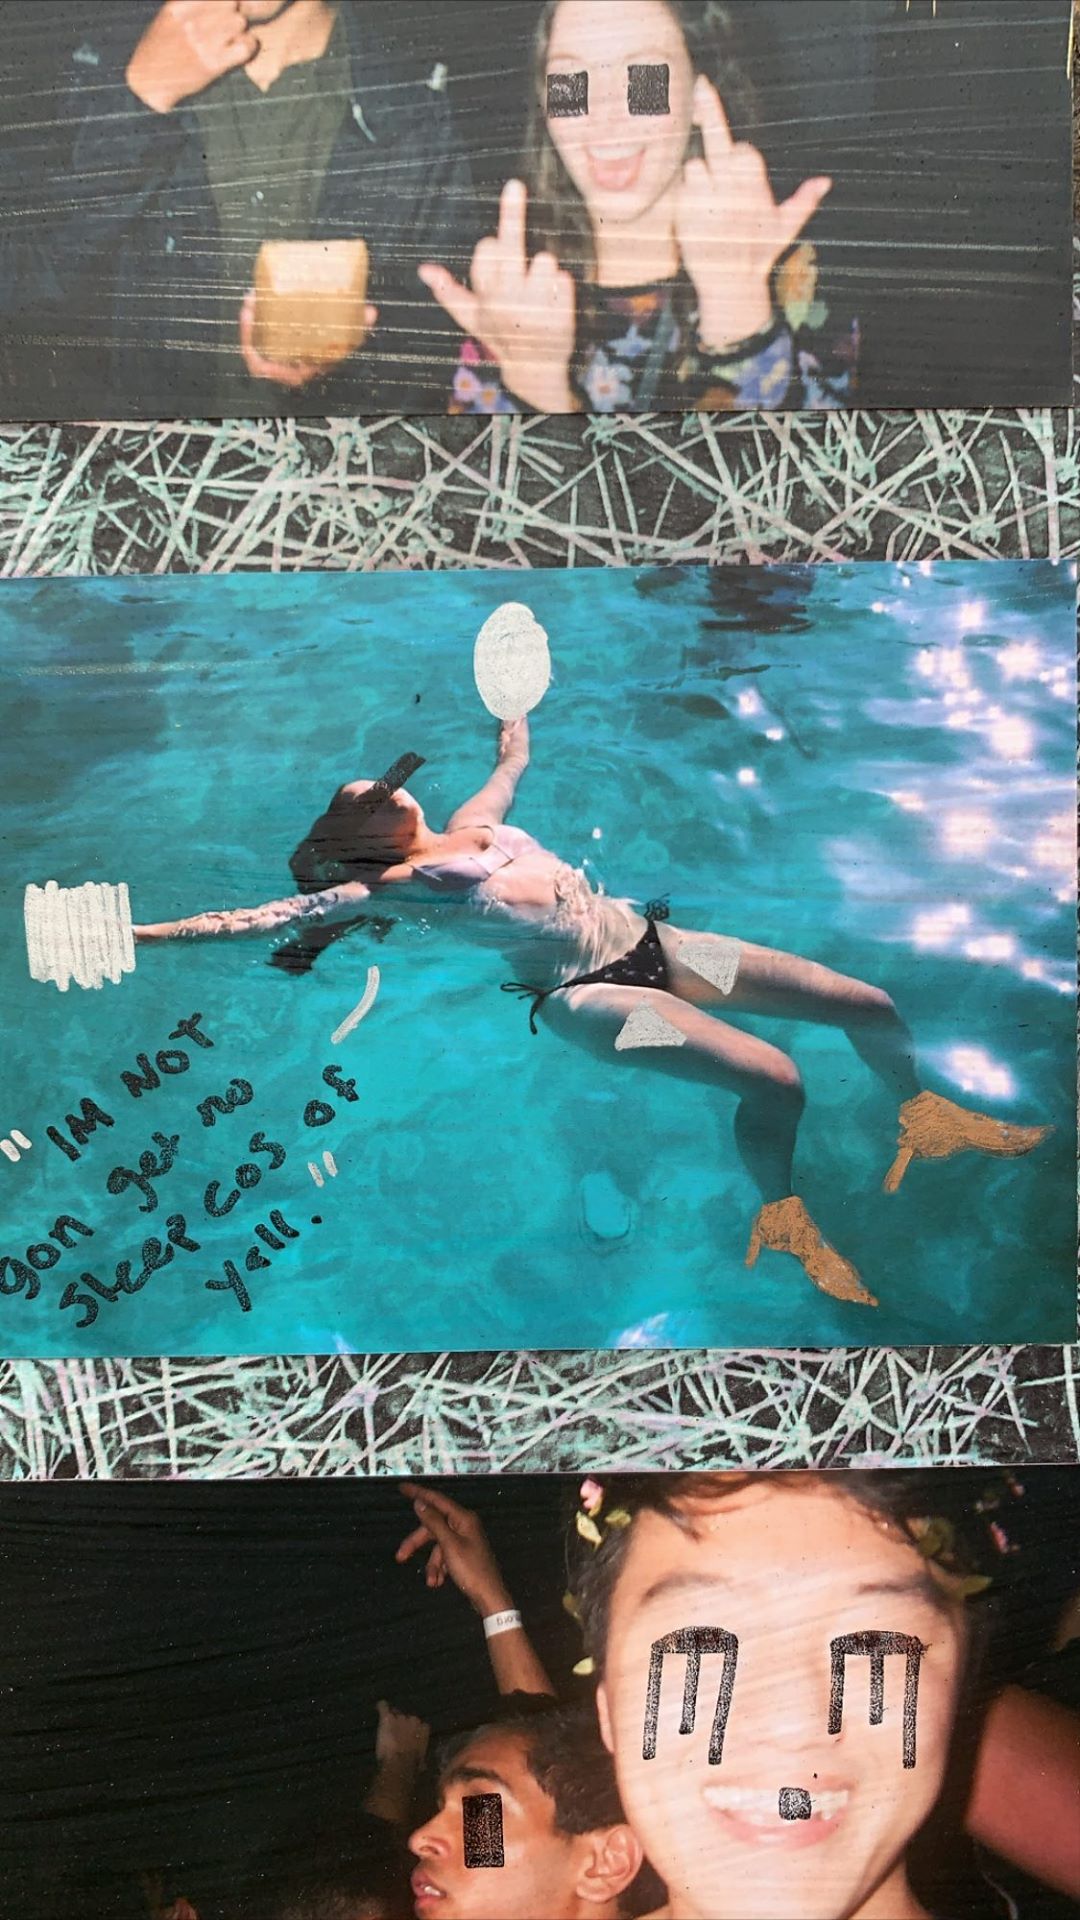 "IM NOT
gon get no
sleep cos of
yall."
.org